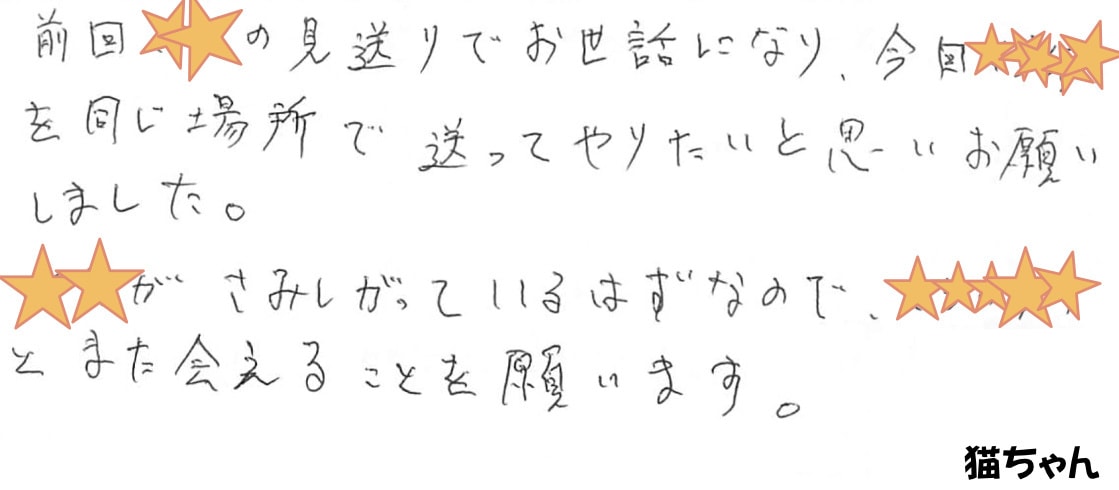 前回の見送りでお世話になり、今回
を同じ場所で送ってやりたいと思いお願い
しました。
がさみしがっているはずなので、
とまた会えることを願います。
猫ちゃん